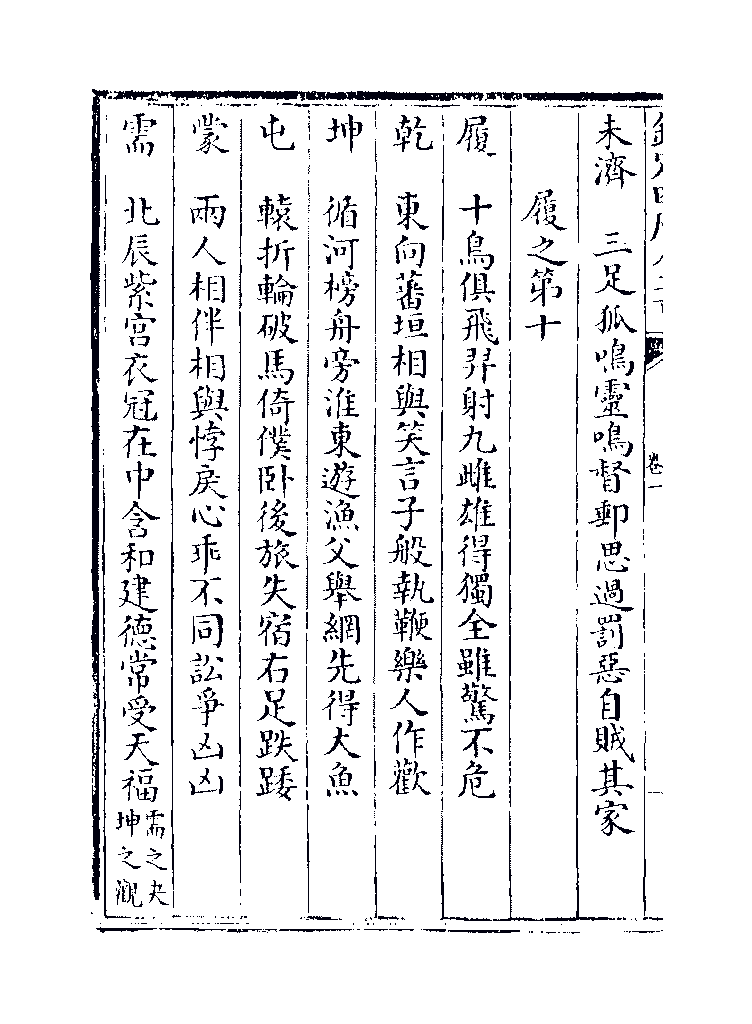 未濟 三足孤鳴靈鳴督郵思過罰惡自賊其家
履之第十
履 十鳥俱飛羿射九雌雄得獨全雖驚不危
乾 東向蕃垣相與笑言子般執鞭樂人作歡
坤 循河榜舟旁淮東遊漁父舉網先得大魚
屯 轅折輪破馬倚僕卧後旅失宿右足跌踒
蒙 兩人相伴相與悖戾心乖不同訟爭凶凶
需 北辰紫宫衣冠在中含和建德常受天福 需之夬
坤之觀
卷一